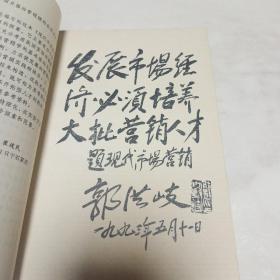 发展市场经
济必须培养
大批营销人才
题现代市场营销
郭洪岐
一九九三年五月十一日